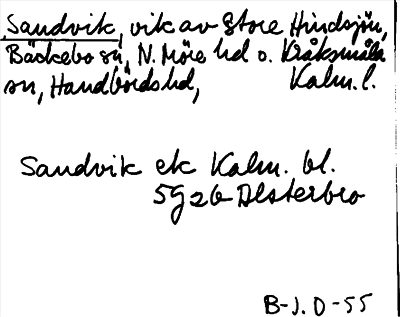 Sandvik, vik av Store Hindsjön,
Bäckebo sn, N. Möre hd o. Kråksmåla
sn, Handbörds hd, Kalm. l.
Sandvik ek Kalm. bl.
5G2b Alsterbro
B-J. D-55